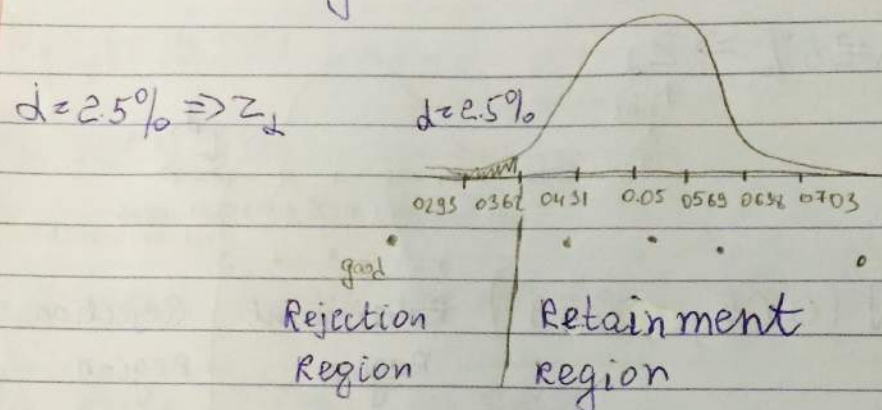 α = 2.5% => Zα
α = 2.5%
0293 0362 0431 0.05 0569 0638 0703
good
Rejection Retainment
Region region